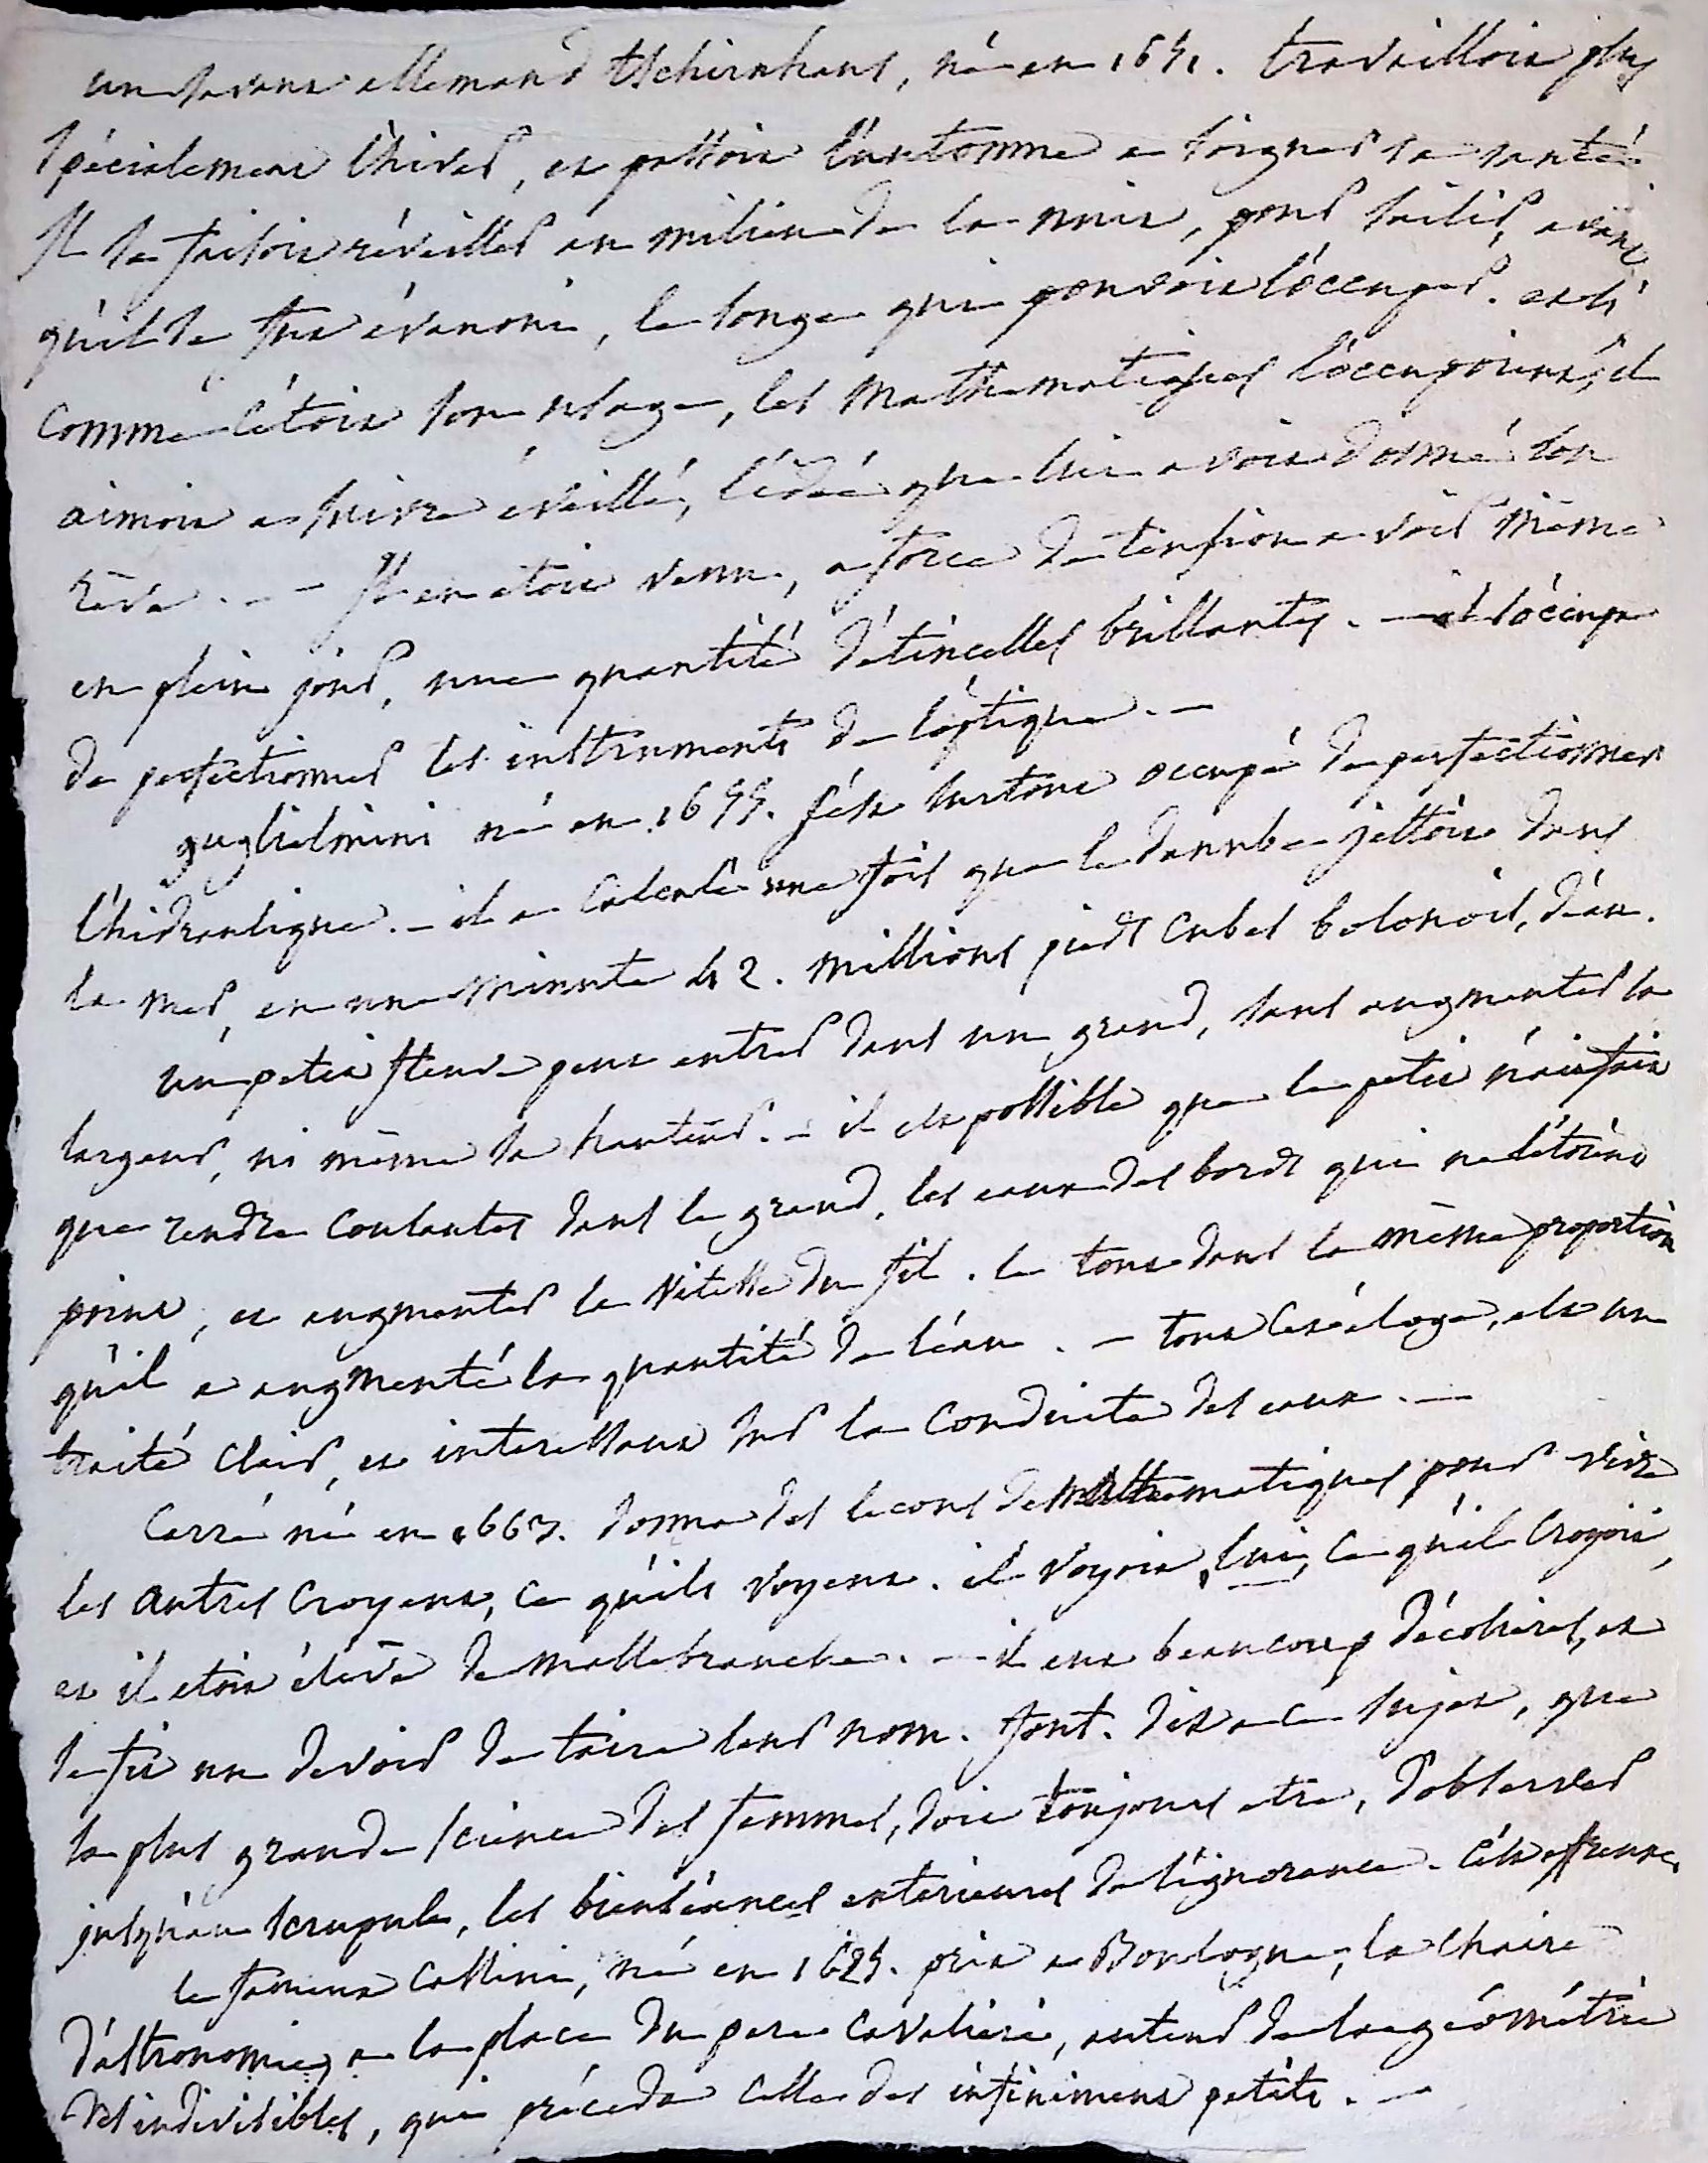 un savant allemand tschirnhaus, né en 1651. travailloit plus
spécialement l'hiver, et passoit l'automne a soigner sa santé.
Il se faisoit réveiller au milieu de la nuit, pour saisir, avant
qu'il se fut évanoui, le songe qui pouvoit l'occuper. et si
comme c'étoit son usage, les Mathematiques l'occupoient, il
aimoit a suivre éveillé, l'idée que lui avoit donné son
rêve. – – Il en etoit venu, a force de tension a voir même
en plein jour, une quantité d'étincelles brillantes. – il s'occupa
de perfectionner les instruments de l'optique. –
guglielmini né en 1655. s'est surtout occupé de perfectionner
l'hidraulique. – il a calculé une fois que le danube jettoit dans
la mer, en une minute 42. millions pieds cubes bolonois, d'eau.
un petit fleuve peut entrer dans un grand, sans augmenter sa
largeur, ni même sa hauteur. – il est possible que le petit n'ait fait
que rendre coulantes dans le grand, les eaux des bords qui ne l'étoient
point, et augmenter la vitesse du fil. le tout dans la même proportion
qu'il a augmenté la quantité de l'eau. – tout cet éloge, est un
traité clair, et interessant sur la conduite des eaux. –
Carré né en 1663. donna des lecons de mathematiques pour vivre
les autres croyent, ce qu'ils voyent. il voyoit, lui, ce qu'il croyoit,
et il etoit élève de mallebranche. – il eut beaucoup d'écolieres, et
se fit un devoir de taire leur nom. font. dit a ce sujet, que
la plus grande science des femmes, doit toujours etre, d'observer
jusqu'au scrupule, les bienséances exterieures de l'ignorance. c'est affreux.
le fameux Cassini, né en 1625. prit a Boulogne, la chaire
d'astronomie, a la place du pere Cavalieri, auteur de la géométrie
des indivisibles, qui préceda celle des infiniment petits. –